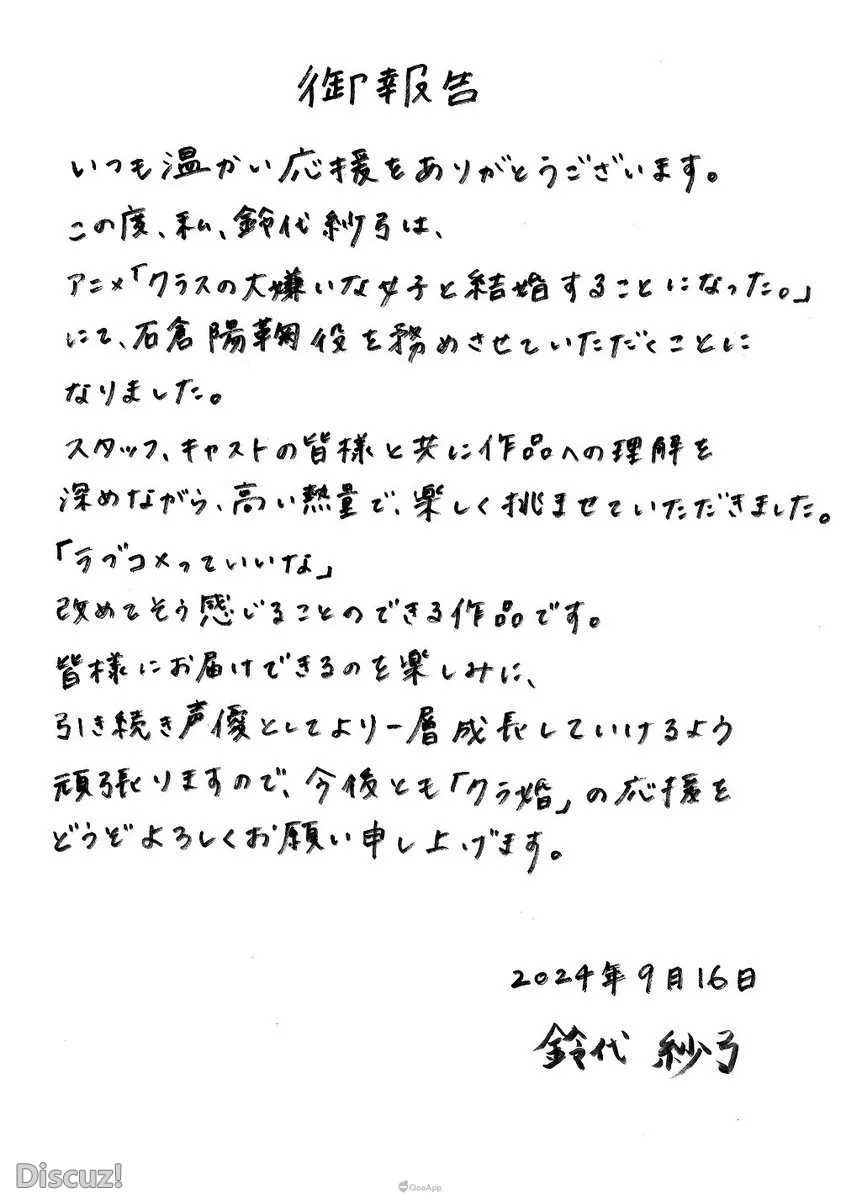 御報告
いつも温かい応援をありがとうございます。
この度、私、鈴代紗弓は、
アニメ「クラスの大嫌いな女子と結婚することになった。」
にて、石倉陽鞠役を務めさせていただくことに
なりました。
スタッフ、キャストの皆様と共に作品への理解を
深めながら、高い熱量で、楽しく挑ませていただきました。
「ラブコメっていいな」
改めてそう感じることのできる作品です。
皆様にお届けできるのを楽しみに、
引き続き声優としてより一層成長していけるよう
頑張りますので、今後とも「クラ婚」の応援を
どうぞよろしくお願い申し上げます。
2024年9月16日
鈴代 紗弓
Discuz!
QooApp